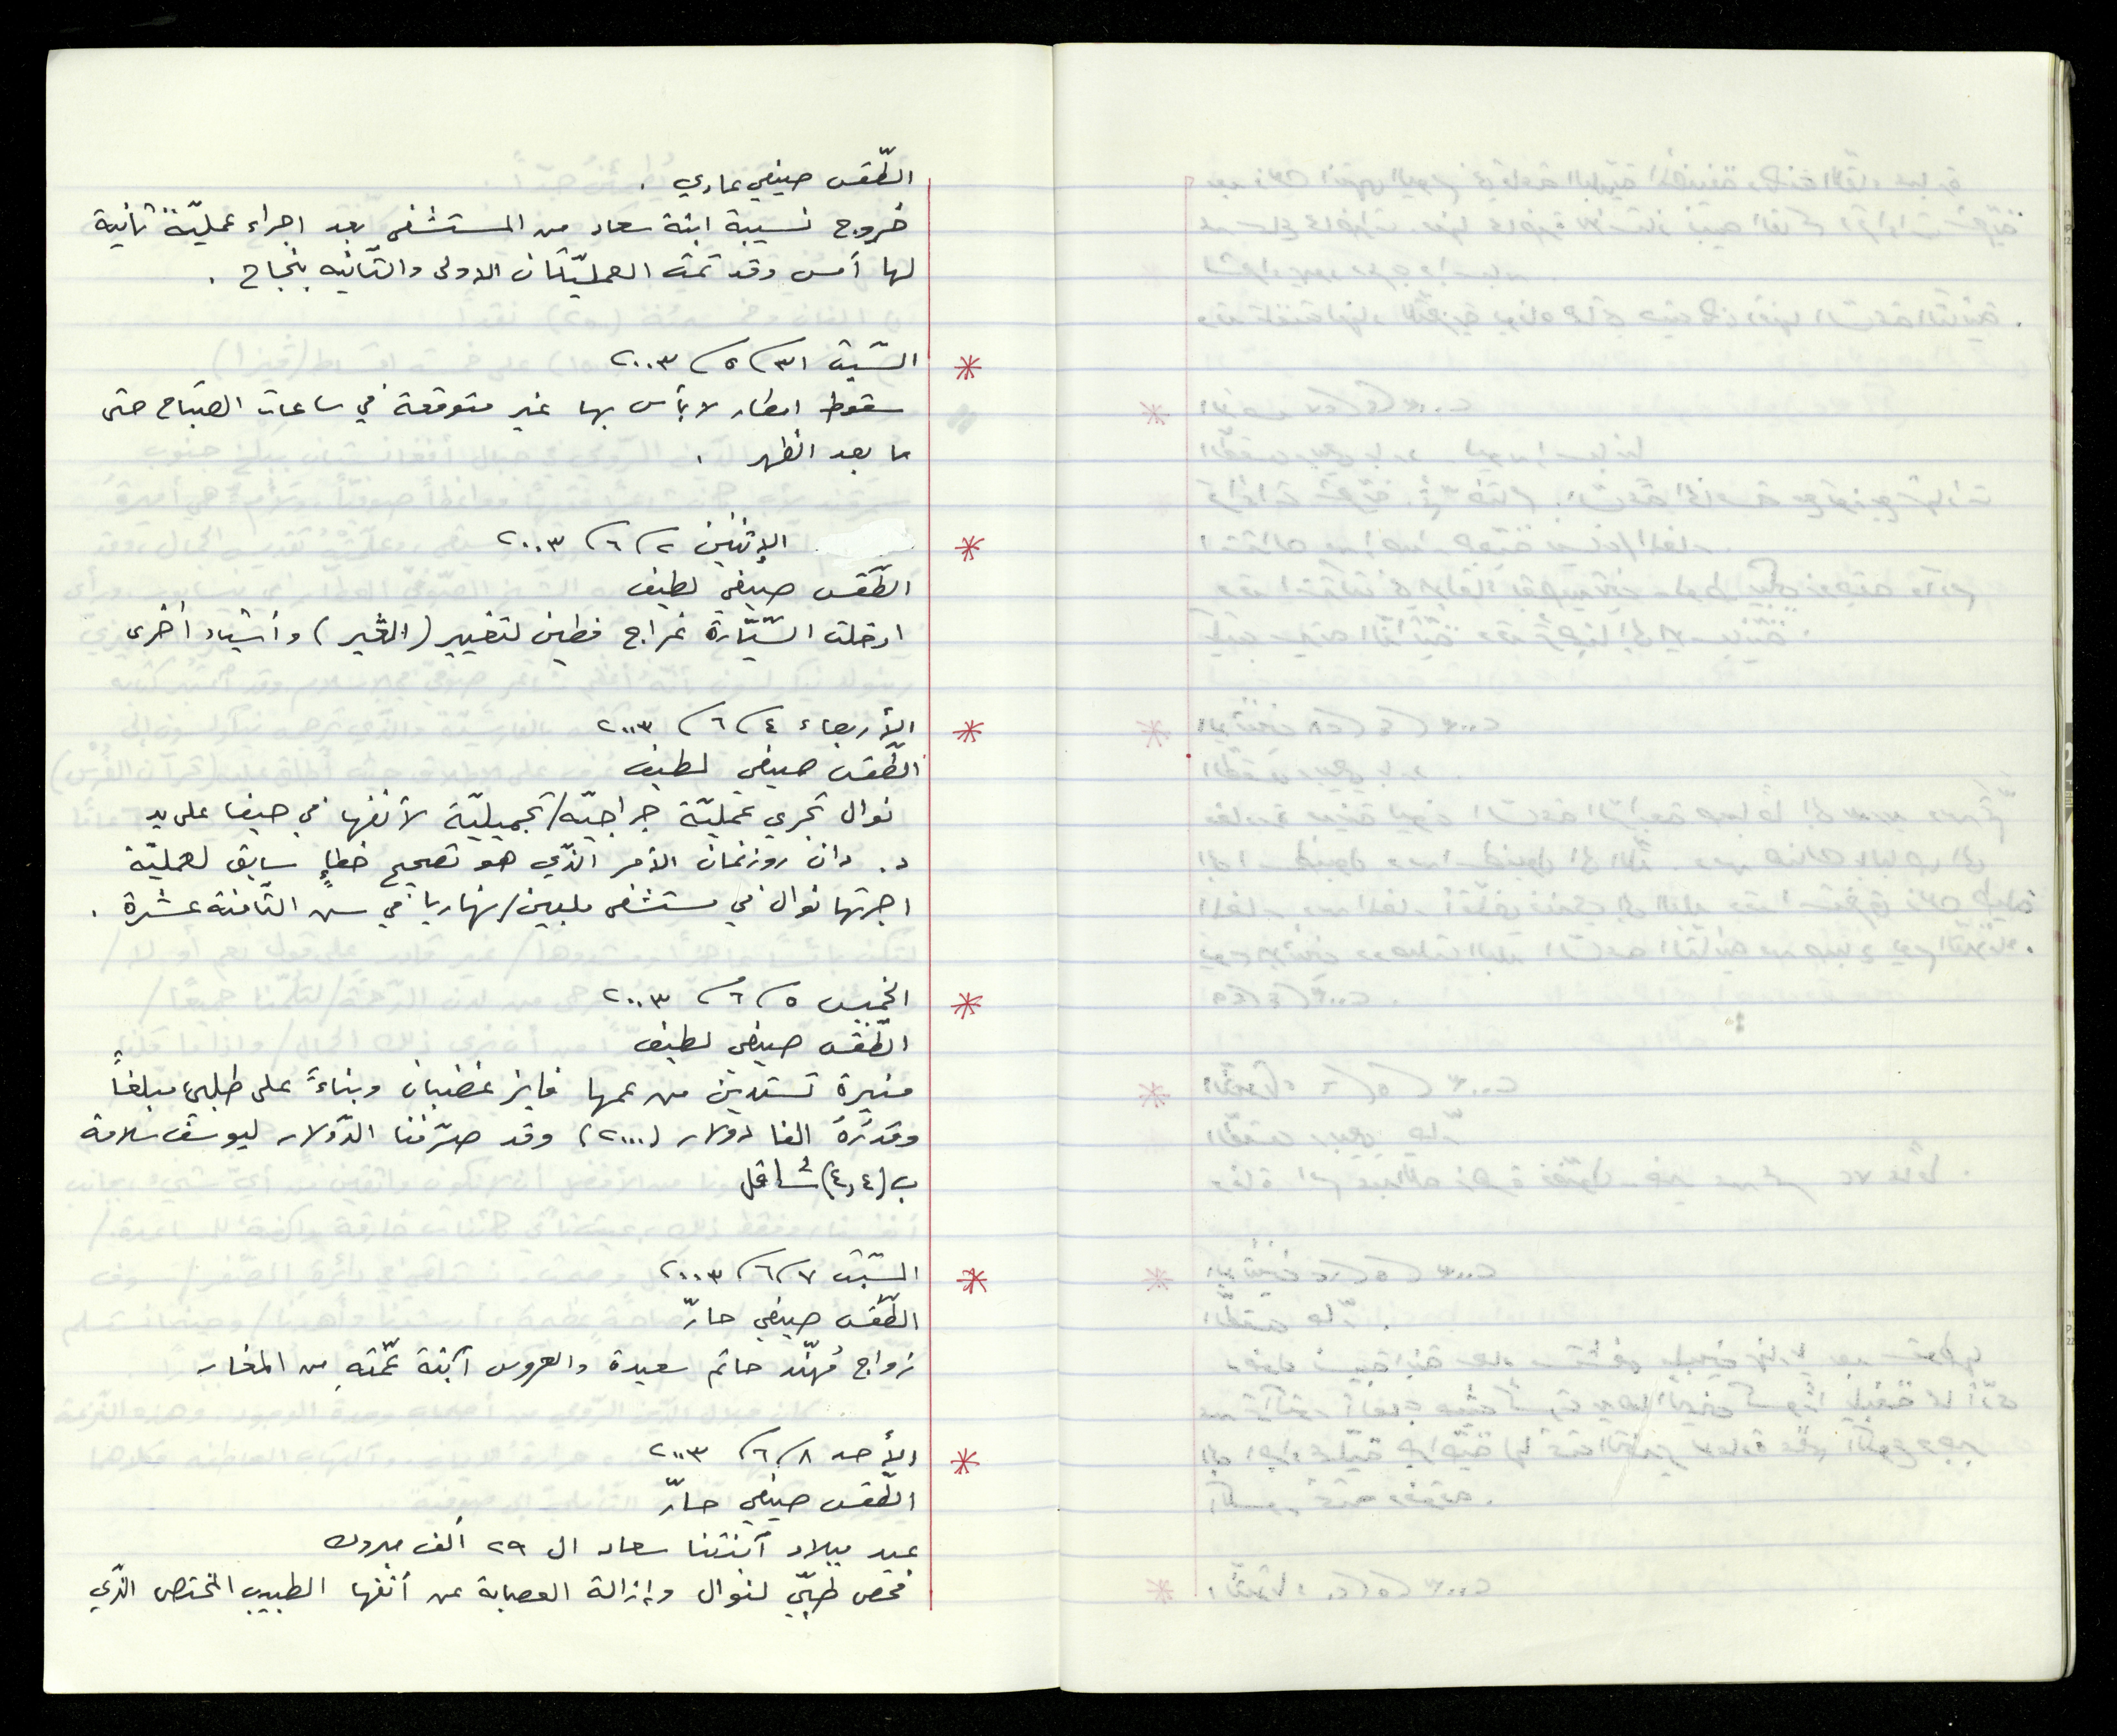 الطّقس صيفي عادي .
خروج نسيبة ابنة سعاد من المستشفى بعد اجراء عمليّة ثانية
لها أمس وقد تمت العمليّتان الاولى والثّانيه بنجاح .
السّبت ٣١/ ٥/ ٢٠٠٣
سقوط امطار لا بأس بها غير متوقعة في ساعات الصّباح حتى
ما بعد الظهر .
الإثنين ٢/ ٦/ ٢٠٠٣
الطّقس صيفي لطيف
ادخلت السّيّارة غراج فطين لتغيير (الڠير) وأشياء أخرى
الأربعاء ٤/ ٦/ ٢٠٠٣
الطّقس صيفي لطيف
نوال تجري عمليّة جراحيّة/تجميليّة لأنفها في حيفا على يد
د. دان روزنمان الأمر الذّي هو تصحيح خطإٍ سابق لعمليّة
اجرتها نوال في مستشفى نهاريا في سن الثّامنة عشرة .
الخميس ٥/ ٦/ ٢٠٠٣
الطّقس صيفي لطيف
منيرة تستدين من عمها فايز غضبان وبناءً على طلبي مبلغاً
وقدرُهُ الفا دولار (٢٠٠٠) وقد صرّفنا الدّولار ليوسف سلامة
ب (٤,٤) شاقل
السّبت ٧/ ٦/ ٢٠٠٣
الطّقس صيفي حارّ
زواج مُهنّد حاتم سعيدة والعروس آبنة عمّته من المغار
الأحد ٨/ ٦/ ٢٠٠٣
الطّقس صيفي حارّ
عيد ميلاد آبنتنا سعاد ال ٢٩ ألف مبروك
فحص طبّي لنوال وإزالة العصابة عن أنفها الطبيب المختص الذّي